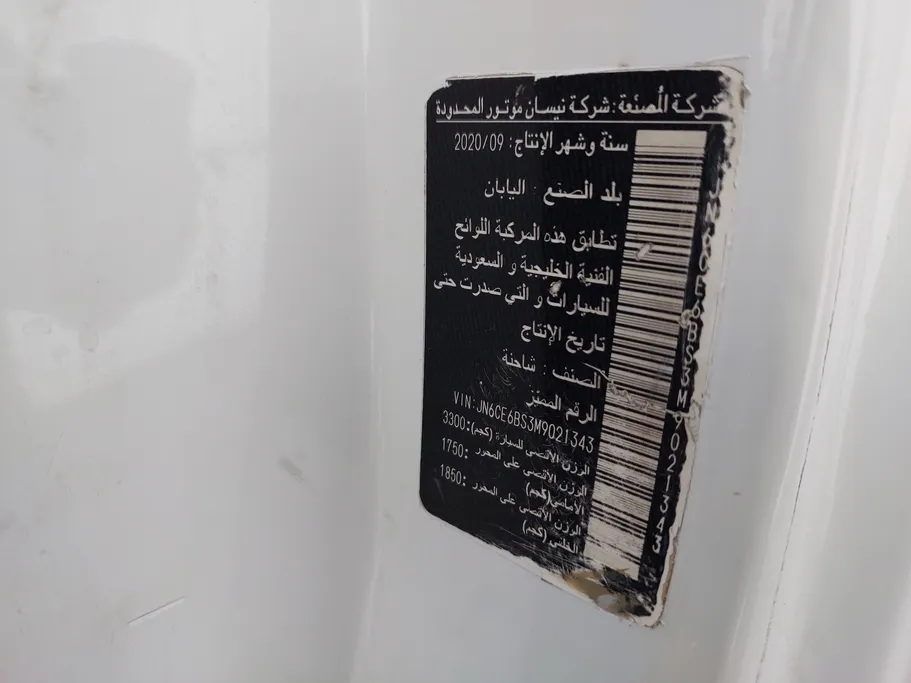 شركة المُصنّعة: شركة نيسان موتور المحدودة
سنة وشهر الإنتاج: 2020/09
بلد الصنع : اليابان
تطابق هذه المركبة اللوائح
الفنية الخليجية و السعودية
للسيارات و التي صدرت حتى
تاريخ الإنتاج
الصنف : شاحنة
الرقم المميّز
VIN:JN6CE6BS3M9021343
الوزن الأقصى للسيارة (كجم): 3300
الوزن الأقصى على المحور : 1750
الأمامي(كجم)
الوزن الأقصى على المحور : 1850
الخلفي (كجم)
JN6CE6BS3M9021343